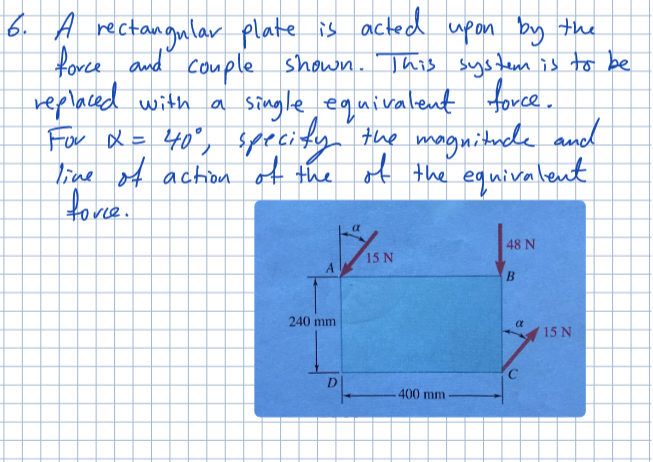 6. A rectangular plate is acted upon by the
force and couple shown. This system is to be
replaced with a single equivalent force.
For α = 40°, specify the magnitude and
line of action of the of the equivalent
force.
α
15 N
48 N
A
B
240 mm
α
15 N
D
C
400 mm